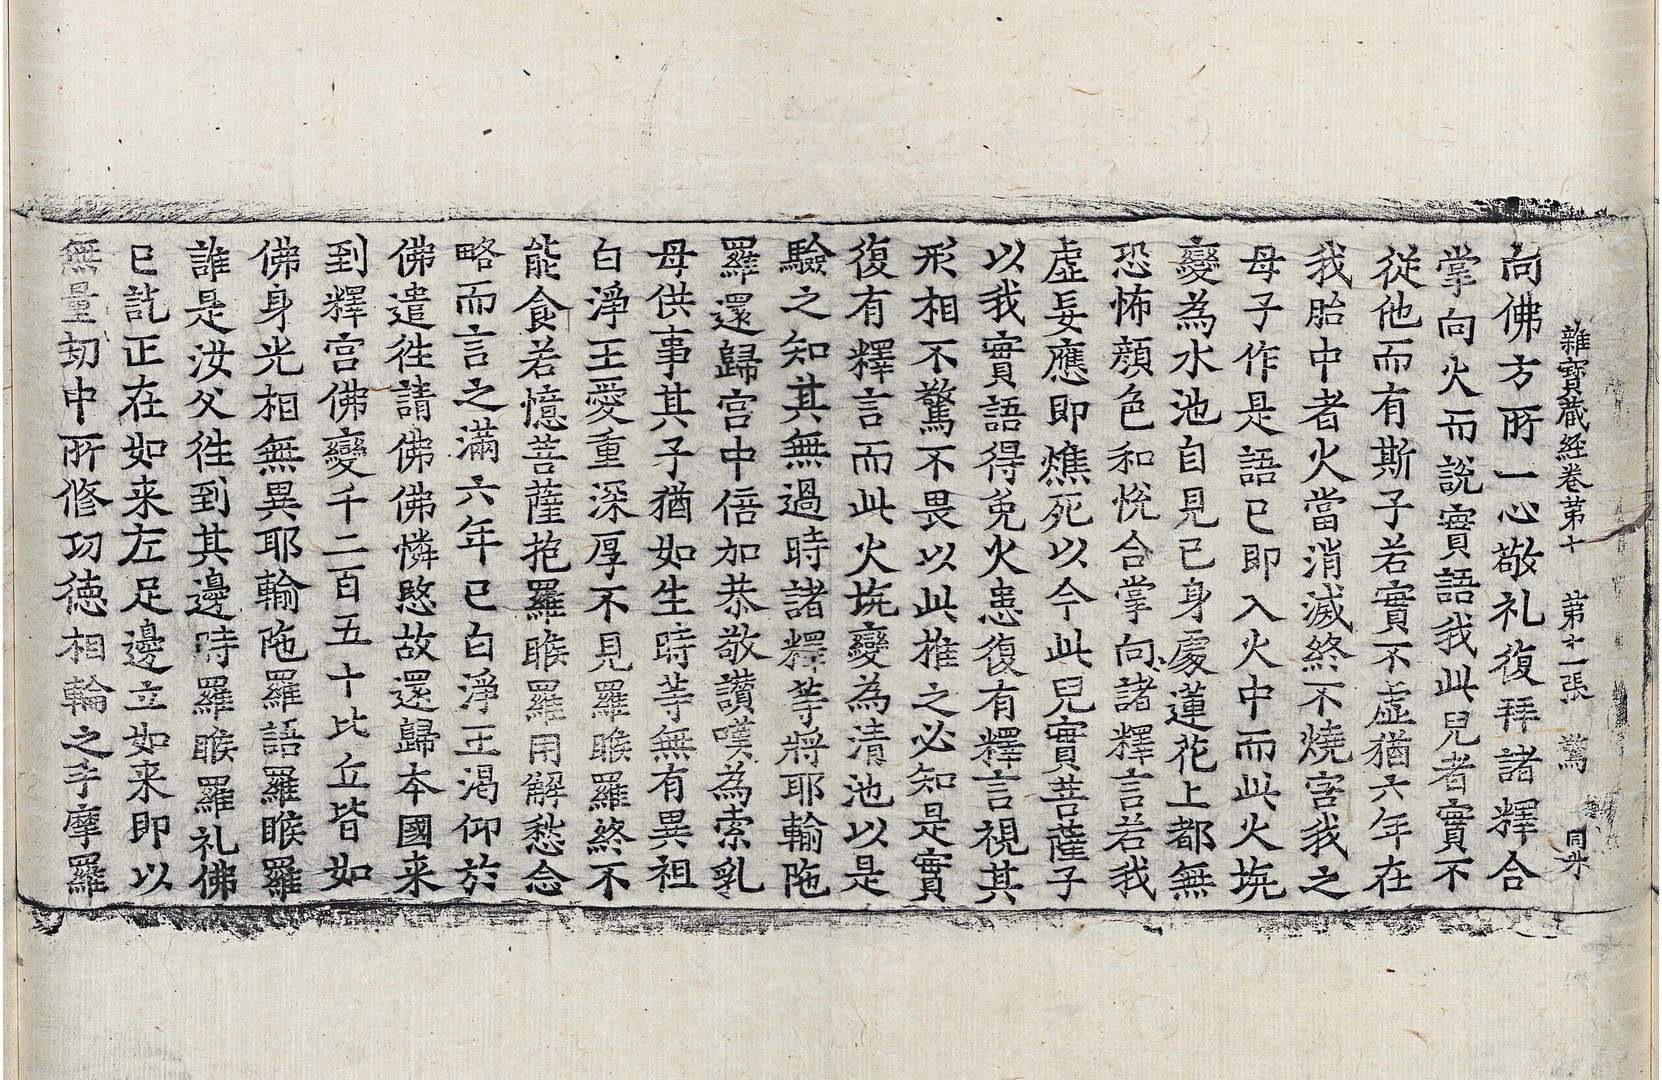 雜寶藏経卷第十　第十一張　驚　同外
向佛方所一心敬礼復拜諸釋合
掌向火而說實語我此兒者實不
從他而有斯子若實不虛猶六年在
我胎中者火當消滅終不燒害我之
母子作是語已即入火中而此火坑
變為水池自見已身處蓮花上都無
恐怖顏色和悅合掌向諸釋言若我
虛妄應即燋死以今此兒實菩薩子
以我實語得免火患復有釋言視其
形相不驚不畏以此推之必知是實
復有釋言而此火坑變為清池以是
驗之知其無過時諸釋等將耶輸陁
羅還歸宮中倍加恭敬讚嘆為索乳
母供事其子猶如生時等無有異祖
白淨王愛重深厚不見羅睺羅終不
能食若憶菩薩抱羅睺羅用解愁念
略而言之滿六年已白淨王渴仰於
佛遣徃請佛佛憐愍故還歸本國来
到釋宮佛變千二百五十比丘皆如
佛身光相無異耶輸陁羅語羅睺羅
誰是汝父徃到其邊時羅睺羅礼佛
已訖正在如来左足邊立如来即以
無量劫中所修功徳相輪之手摩羅